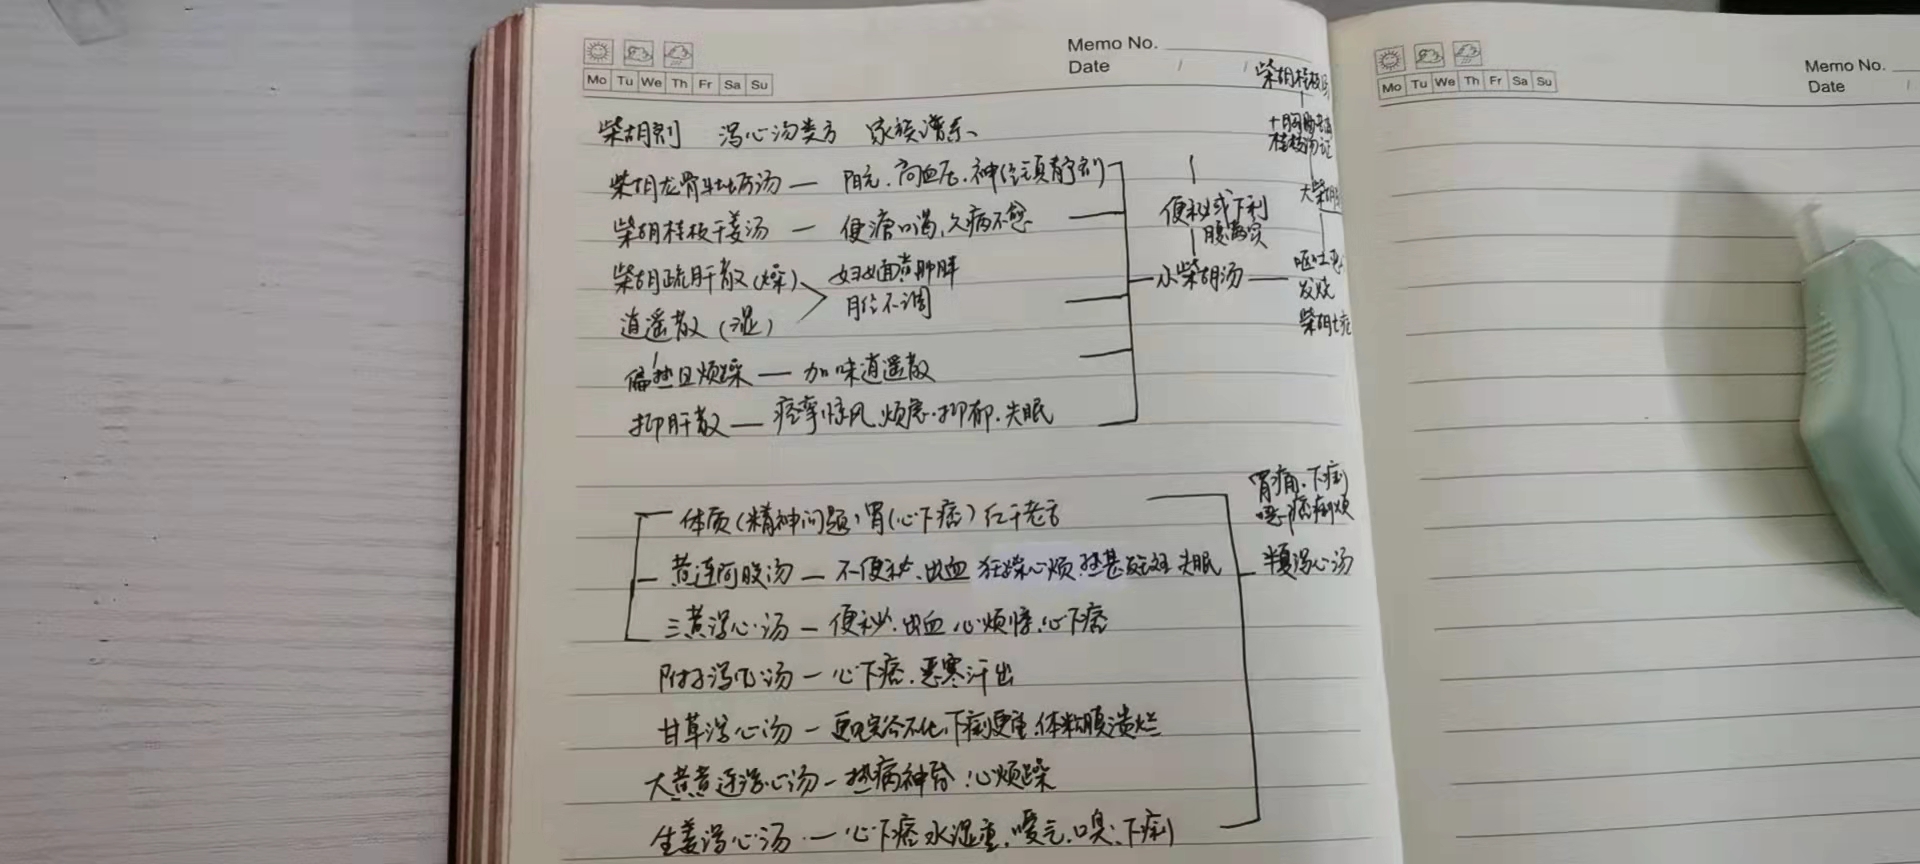 Memo No.
Date / /
Mo Tu We Th Fr Sa Su
柴胡桂枝汤
柴胡剂 泻心汤类方 家族谱系
桂枝汤证
柴胡龙骨牡蛎汤 — 阳亢.高血压.神经镇静剂
大柴胡
便秘或下利
腹满实
柴胡桂枝干姜汤 — 便溏口渴,久病不愈
柴胡疏肝散(燥)
逍遥散(湿)
妇女面黄肿胖
月经不调
小柴胡汤
呕吐
发烧
柴胡
偏热且烦躁 — 加味逍遥散
抑肝散 — 痉挛惊风.烦急.抑郁.失眠
体质(精神问题)胃(心下痞)红干老舌
胃痛.下利
黄连阿胶汤 — 不便秘.出血 狂躁心烦.热甚发斑 失眠
半夏泻心汤
三黄泻心汤 — 便秘.出血.心烦悸.心下痞
附子泻心汤 — 心下痞.恶寒汗出
甘草泻心汤 — 更见完谷不化.下利更重.体粘膜溃烂
大黄黄连泻心汤 — 热病神昏.心烦躁
生姜泻心汤 — 心下痞水湿重.嗳气.口臭.下利
Memo No.
Date /
Mo Tu We Th Fr Sa Su